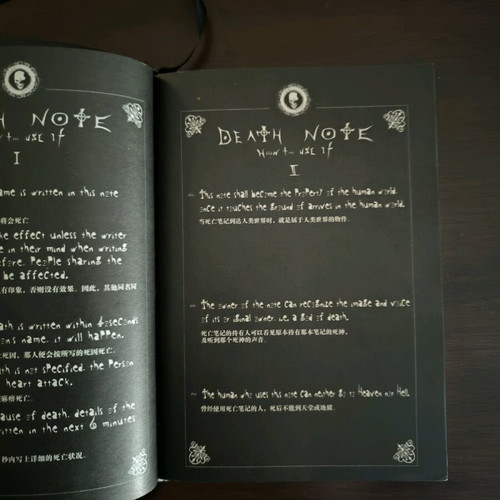 H NOTE
to use it
I
ame is written in this note
将会死亡.
ke effect unless the writer
e in their mind when writing
efore. People sharing the
be affected.
有印象，否则没有效果。因此，其他同名同
ath is written within 40seconds
on's name, it will happen.
死因，那人便会按所写的死因死亡.
th is not specified, the person
heart attack.
麻痹死亡.
ause of death, details of the
ritten in the next 6 minutes
秒内写上详细的死亡状况.
DEATH NOTE
How to use it
II
This note shall become the property of the human world,
once it touches the ground of arrives in the human world.
当死亡笔记到达人类世界时，就是属于人类世界的物件.
The owner of the note can recognise the image and voice
of its original owner, i.e. a god of death.
死亡笔记的持有人可以看见原本持有那本笔记的死神,
及听到那个死神的声音.
The human who uses this note can neither go to Heaven nor Hell.
曾经使用死亡笔记的人，死后不能到天堂或地狱.